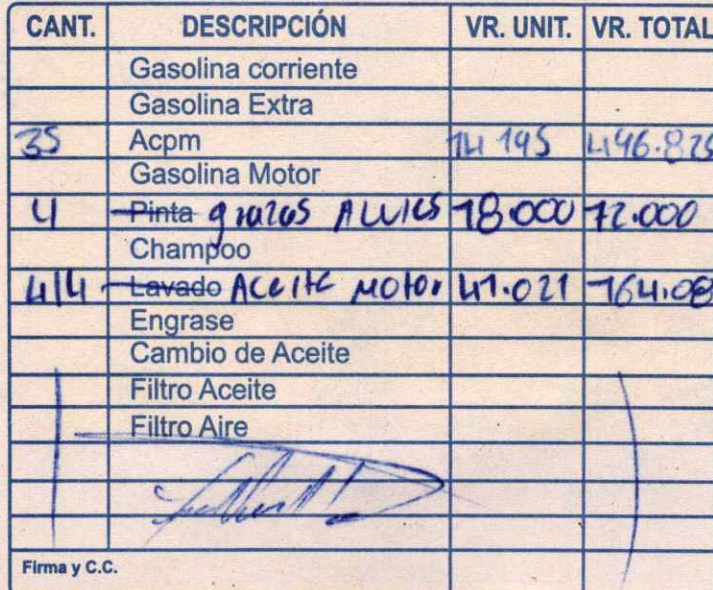 CANT. DESCRIPCIÓN VR. UNIT. VR. TOTAL
Gasolina corriente
Gasolina Extra
35 Acpm 14195 496.825
Gasolina Motor
4 Pinta grazas 18.000 72.000
Champoo
4/4 Lavado Aceite Motor 41.021 164.08
Engrase
Cambio de Aceite
Filtro Aceite
Filtro Aire
Firma y C.C.